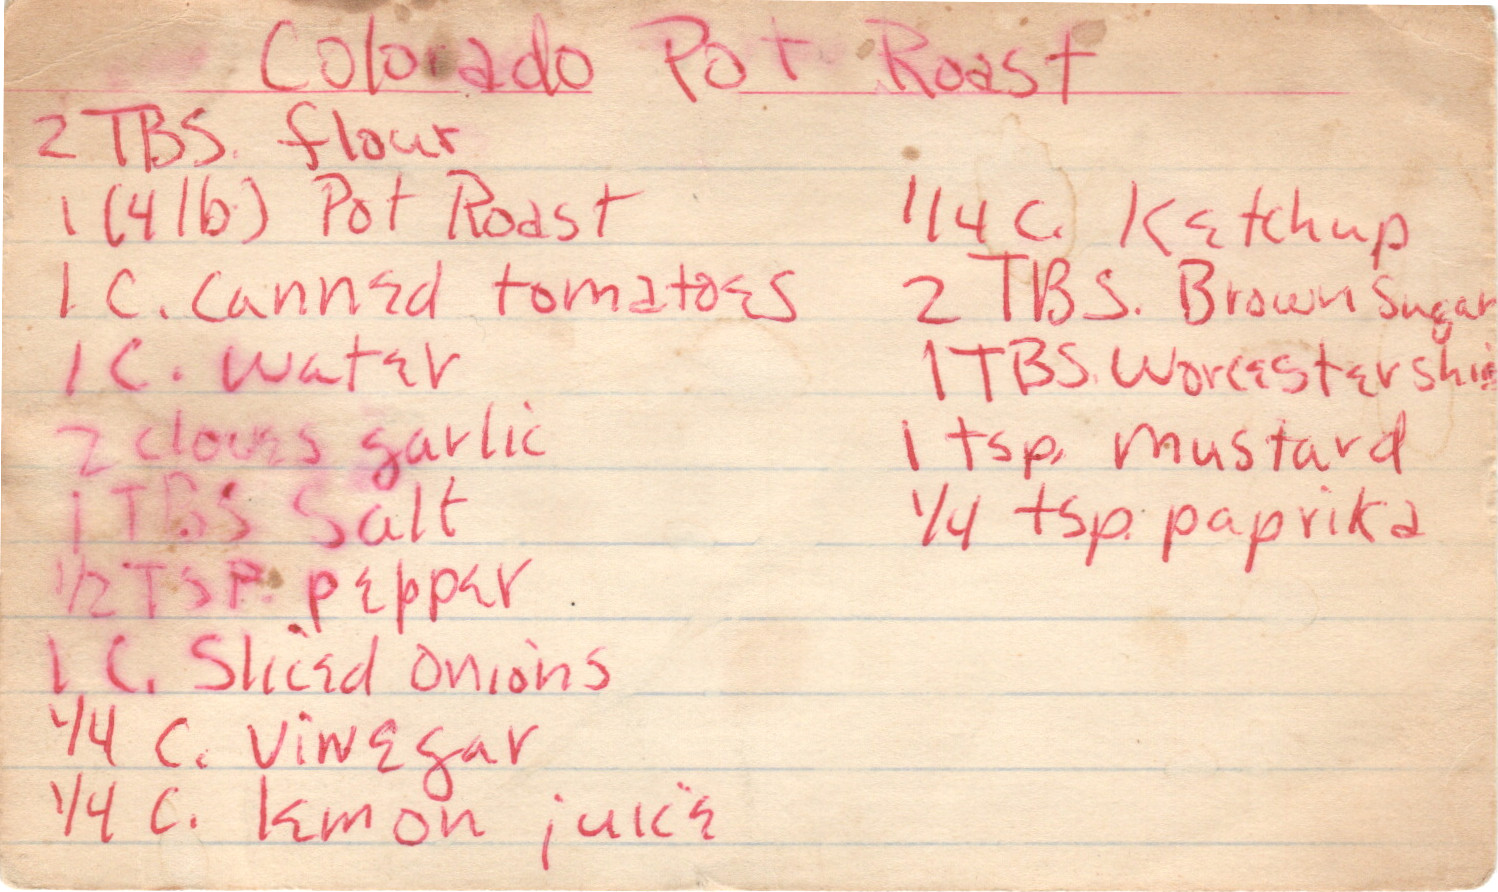 Colorado Pot Roast
2 TBS. flour
1 (4 lb) Pot Roast
1 C. Canned tomatoes
1 C. water
2 cloves garlic
1 TBS Salt
1/2 TSP. pepper
1 C. Sliced Onions
1/4 C. Vinegar
1/4 C. lemon juice
1/4 C. Ketchup
2 TBS. Brown Sugar
1 TBS. Worcestershire
1 tsp. mustard
1/4 tsp. paprika